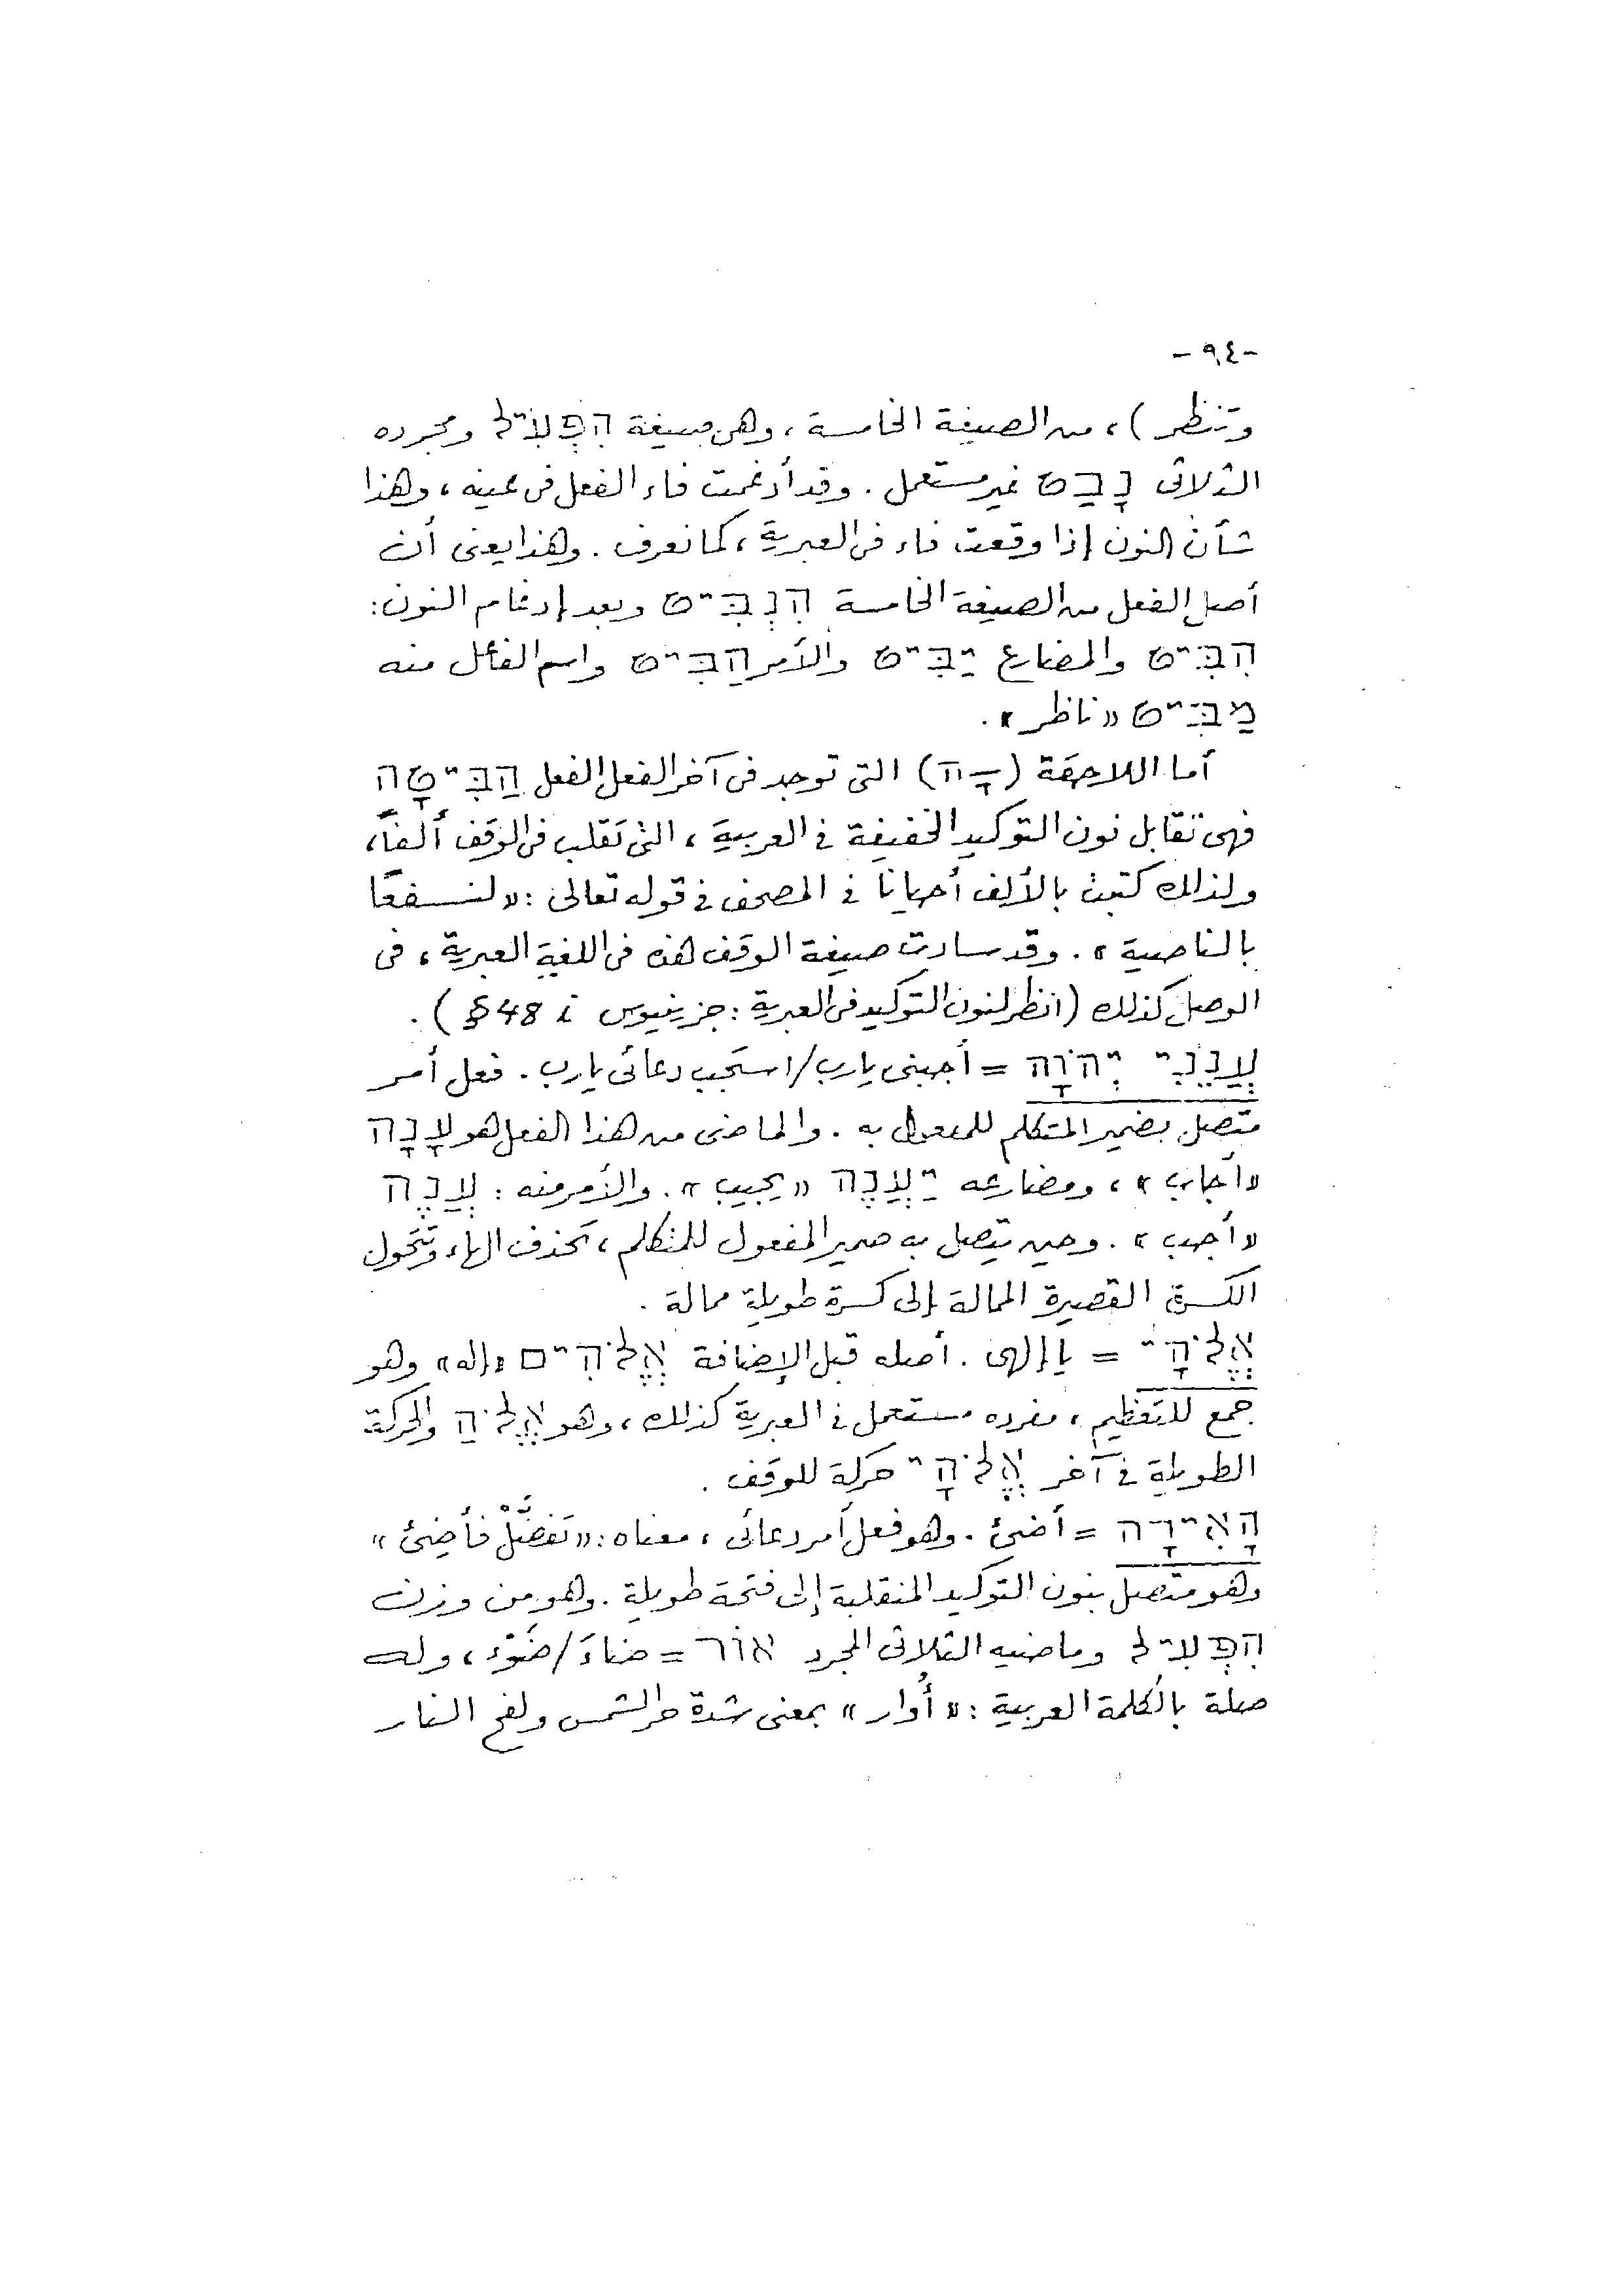 -٩٤-
وتنظر)، من الصيغة الخامسة، وهى صيغة הִפְעִיל ومجرده
الثلاثى נָבַט غير مستعمل. وقد أدغمت فاء الفعل فى عينه، وهذا
شأن النون إذا وقعت فاء فى العبرية، كما نعرف. وهذا يعنى أن
أصل الفعل من الصيغة الخامسة הִנְבִּיט وبعد إدغام النون:
הִבִּיט والمضارع יַבִּיט والأمر הַבִּיט واسم الفاعل منه
מַבִּיט «ناظر».
أما اللاحقة (ָה) التى توجد فى آخر الفعل الفعل הַבִּיטָה
فهى تقابل نون التوكيد الخفيفة فى العربية، التى تقلب فى الوقف ألفًا،
ولذلك كتبت بالألف أحيانا فى المصحف فى قوله تعالى: «لنسفعًا
بالناصية». وقد سادت صيغة الوقف هذه فى اللغة العبرية، فى
الوصل كذلك (انظر لنون التوكيد فى العبرية: جزينيوس §48 i).
עֲנֵנִי יְהוָֹה = أجبنى يارب/استجب دعائى يارب. فعل أمر
متصل بضمير المتكلم للمفعول به. والماضى من هذا الفعل هو עָנָה
«أجاب»، ومضارعه יַעֲנֶה «يجيب». والأمر منه: עֲנֶה
«أجب». وحين يتصل به ضمير المفعول للمتكلم، تحذف الهاء وتتحول
الكسرة القصيرة الممالة إلى كسرة طويلة ممالة.
אֱלֹהָי = يا إلهى. أصله قبل الإضافة אֱלֹהִים «إله» وهو
جمع للتعظيم، مفرده مستعمل فى العبرية كذلك، وهو אֱלֹהַ والحركة
الطويلة فى آخر אֱלֹהָי حركة للوقف.
הָאִירָה = أضئ. وهو فعل أمر دعائى، معناه: «تَفضَّلْ فأَضِئ»
وهو متصل بنون التوكيد المنقلبة إلى فتحة طويلة. وهو من وزن
הִפְעִיל وماضيه الثلاثى المجرد אוֹר = ضاءَ/ضَوْء، وله
صلة بالكلمة العربية: «أُوار» بمعنى شدة حر الشمس ولفح النار